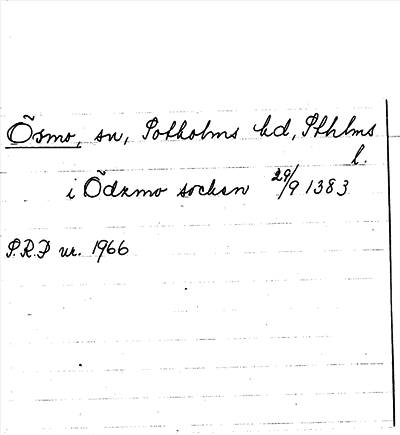 Ösmo, sn, Sotholms hd, Sthlms
l.
i Ödzmo sockan 29/9 1383
S.R.P nr. 1966